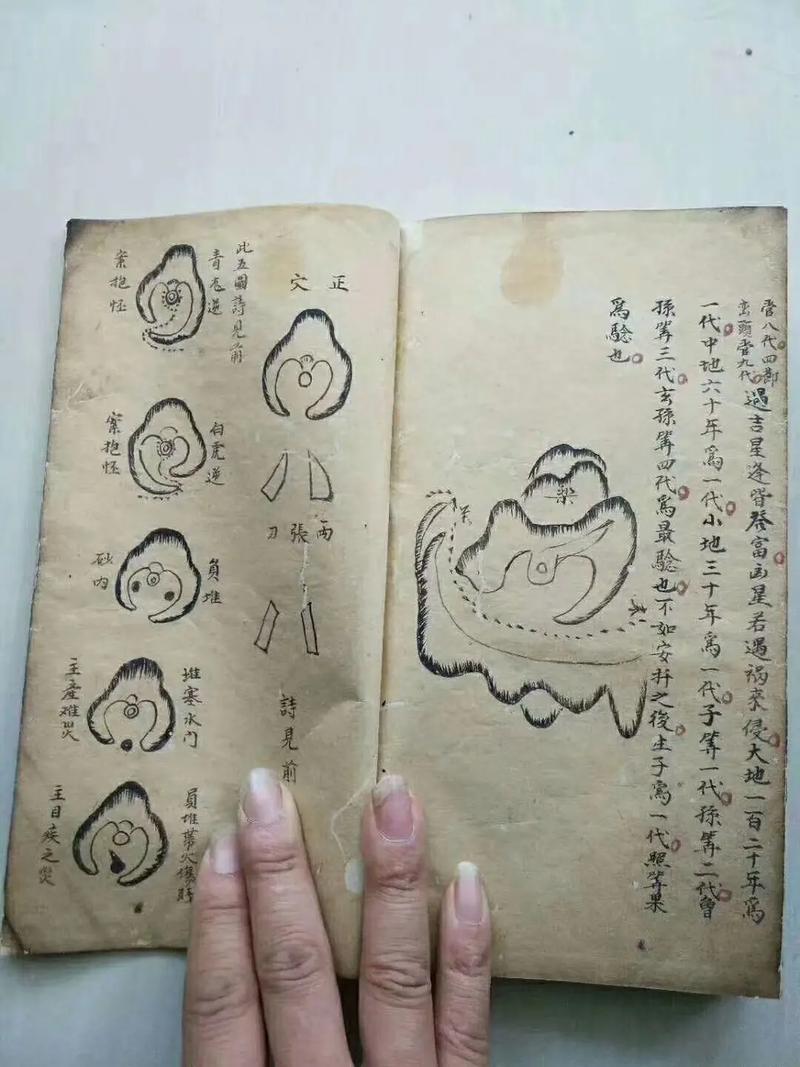 管八代四部
巒頭管九代
遇吉星逢皆發富凶星若遇禍來侵大地一百二十年為
一代中地六十年為一代小地三十年為一代子筭一代孫筭二代曾
孫筭三代玄孫筭四代為最驗也不如安扦之後生子為一代照筭果
為驗也
樂
正穴
兩張刀
詩見前
此五圖詩見前
青龍逆
案抱怪
白虎逆
案抱怪
員堆
砂內
堆塞水门
主產难災
員堆帶火
主目疾之災